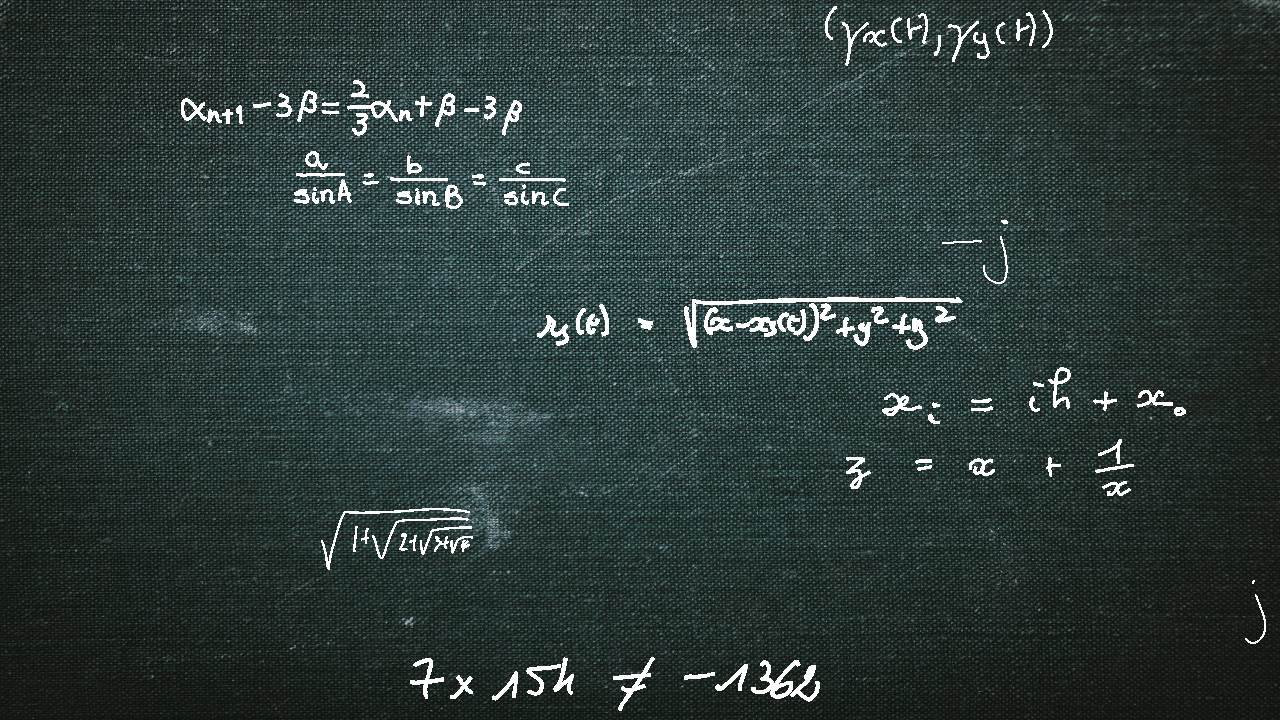 (γx(t), γy(t))
αn+1 − 3β = 2/3 αn + β − 3β
a/sinA = b/sinB = c/sinC
− j
rs(t) = √((x − xs(t))² + y² + z²)
xi = ih + x0
z = x + 1/x
√(1+√(2+√(3+√4
j
7 × 15h ≠ −1362